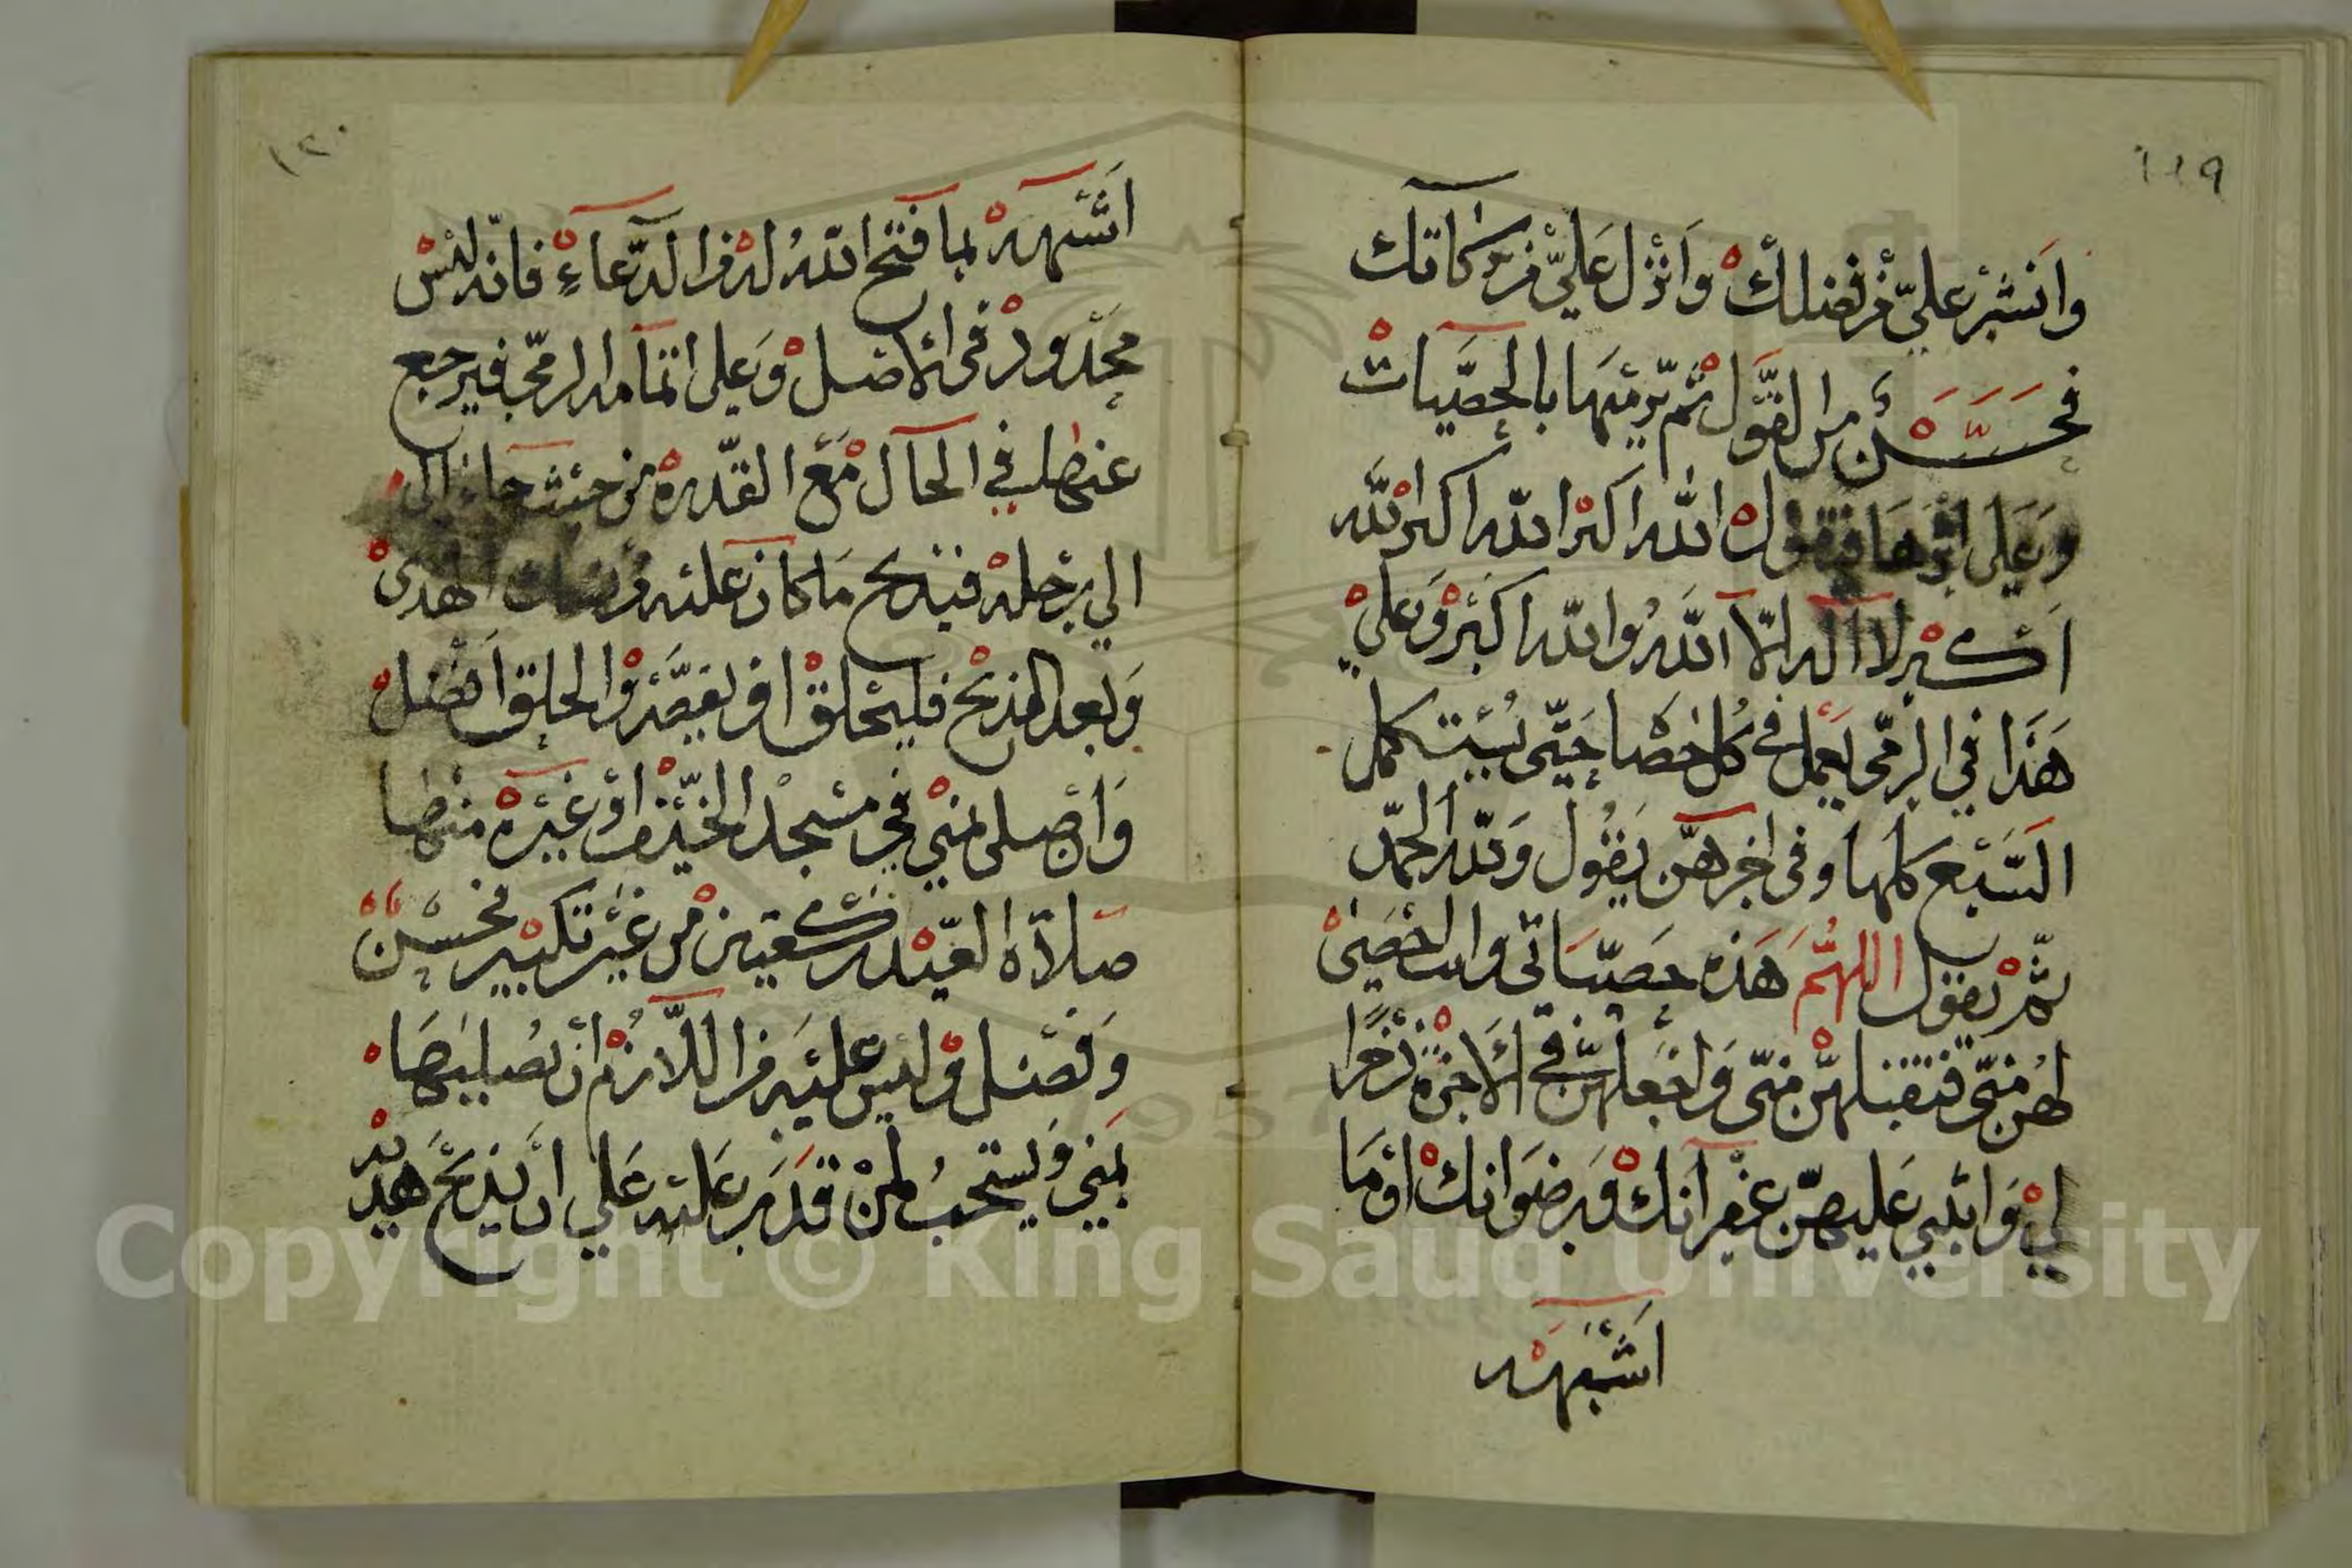 ١١٩
وانشر علي من فضلك وانزل علي من بركاتك
فحسن من القول ثم يرميها بالحصيات
وعلى اثرها فيقول الله اكبر الله اكبر الله
اكبر لا اله الا الله والله اكبر وعلى
هذا في الرمى يعمل في كل حصا حتى يستكمل
السبع كلها وفى اخرهن يقول ولله الحمد
ثم يقول اللهم هذه حصياتى وانت احصى
لهن منى فتقبلهن منى واجعلهن في الاخرة ذخرا
لي واثبني عليهن غفرانك ورضوانك او ما
اشبهه
١٢٠
اشبهه بما فتح الله له من الدعاء فانه ليس
محدود فى الاصل وعلى اتمامه الرمى فيرجع
عنها في الحال مع القدرة من حيث جاء الى
الي رحله فيذبح ما كان عليه من الهدى
وبعد الذبح فليحلق او يقصر والحلق افضل
واصلى بمنى في مسجد الخيف او غيره منها
صلاة العيد ركعتين من غير تكبير فحسن
وفضل وليس عليه من اللازم ان يصليها
بمنى ويستحب لمن قدر عليه على ان يذبح هديه
Copyright © King Saud University
1957